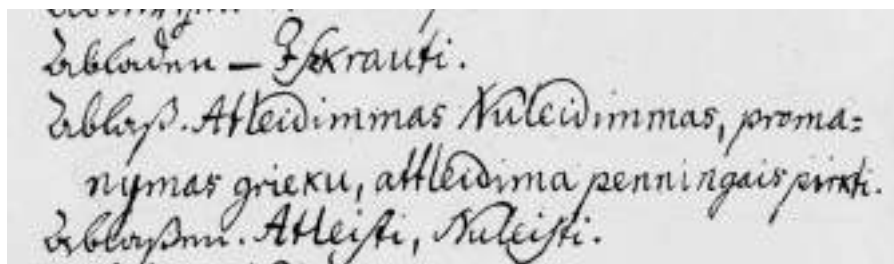 Abladen – Iszkrauti.
Ablaß. Atleidimmas Nuleidimmas, proma=
nymas grieku, attleidima penningais pirkti.
Ablaßen. Atleisti, Nuleisti.